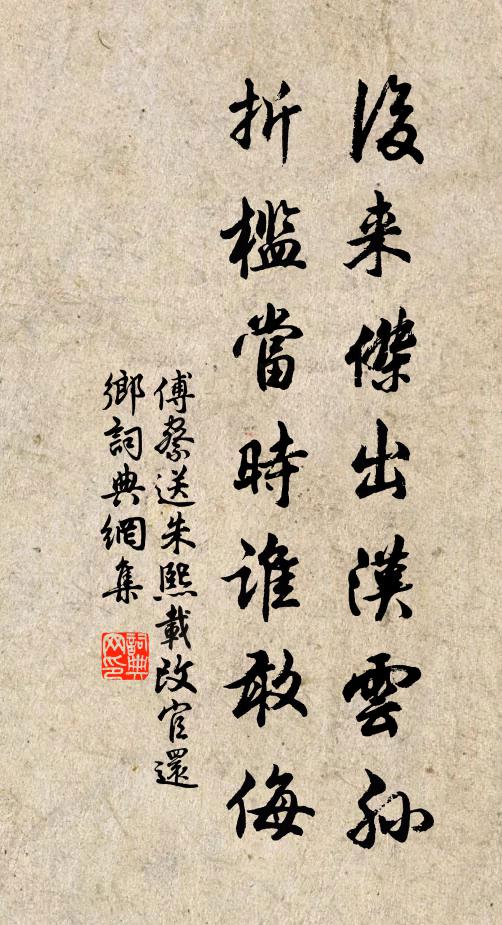 後来傑出漢雲孫
折檻當時誰敢侮
傅察送朱熙載改官還
鄉詞典網集
詞典网印